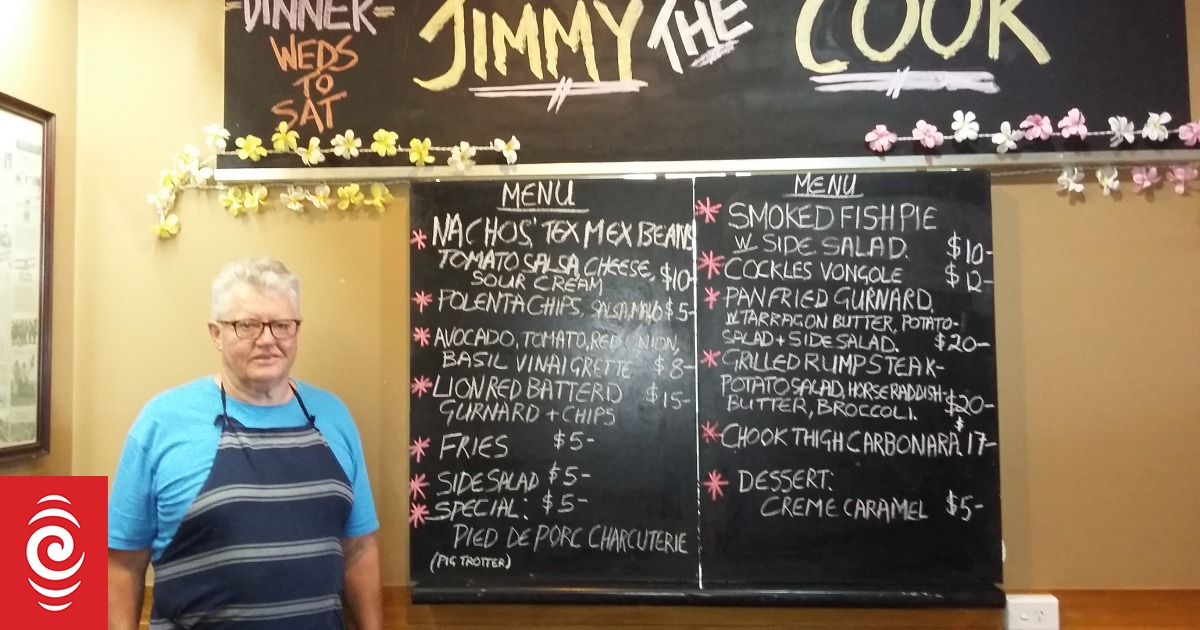 =DINNER=
WEDS
TO
SAT
JIMMY THE COOK
MENU
* NACHOS, TEX MEX BEANS
TOMATO SALSA, CHEESE, $10-
SOUR CREAM
* POLENTA CHIPS, SALSA, MAYO $5-
* AVOCADO, TOMATO, RED ONION,
BASIL VINAIGRETTE $8-
* LION RED BATTERD $15-
GURNARD + CHIPS
* FRIES $5-
* SIDE SALAD $5-
* SPECIAL: $5-
PIED DE PORC CHARCUTERIE
(PIG TROTTER)
MENU
* SMOKED FISH PIE
W SIDE SALAD. $10-
* COCKLES VONGOLE $12-
* PAN FRIED GURNARD,
W TARRAGON BUTTER, POTATO-
SALAD + SIDE SALAD. $20-
* GRILLED RUMP STEAK-
POTATO SALAD, HORSERADDISH-
BUTTER, BROCCOLI. $20-
* CHOOK THIGH CARBONARA $17-
* DESSERT:
CREME CARAMEL $5-
RNZ